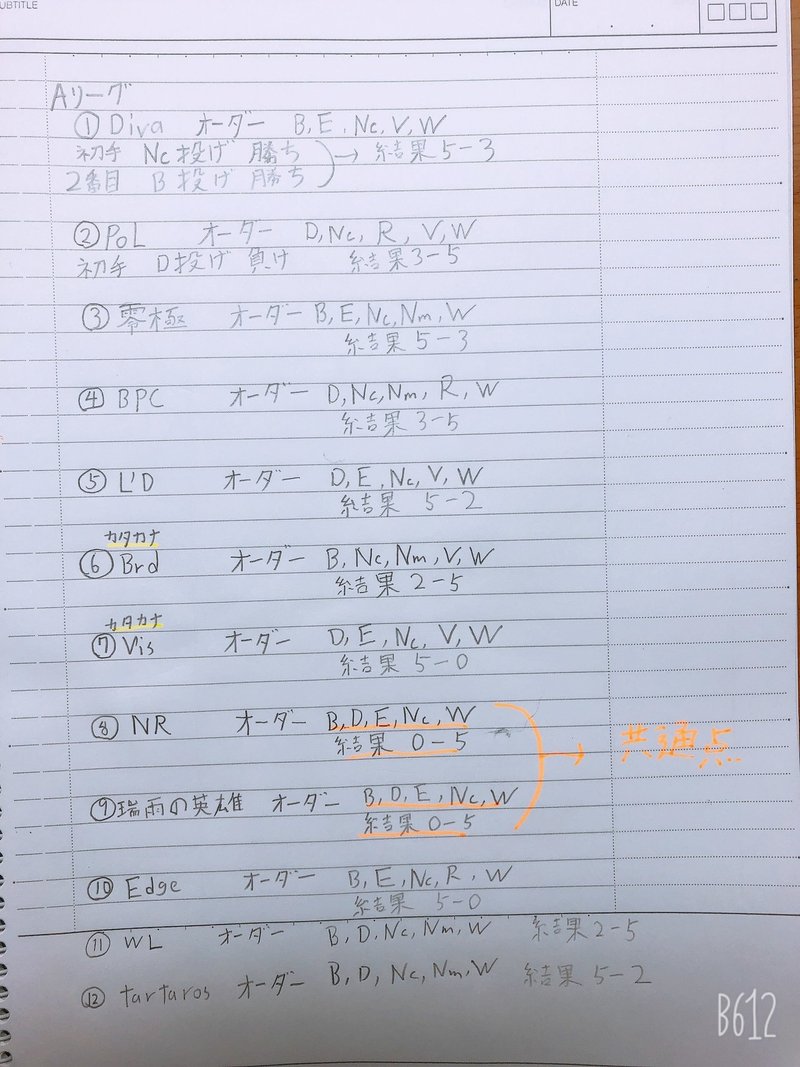 SUBTITLE
DATE
Aリーグ
① Diva オーダー B, E, Nc, V, W
初手 Nc投げ 勝ち
→ 結果 5-3
2番目 B投げ 勝ち
② PoL オーダー D, Nc, R, V, W
初手 D投げ 負け 結果 3-5
③ 零極 オーダー B, E, Nc, Nm, W
結果 5-3
④ BPC オーダー D, Nc, Nm, R, W
結果 3-5
⑤ L'D オーダー D, E, Nc, V, W
結果 5-2
カタカナ
⑥ Brd オーダー B, Nc, Nm, V, W
結果 2-5
カタカナ
⑦ Vis オーダー D, E, Nc, V, W
結果 5-0
⑧ NR オーダー B, D, E, Nc, W
結果 0-5
→ 共通点
⑨ 瑞雨の英雄 オーダー B, D, E, Nc, W
結果 0-5
⑩ Edge オーダー B, E, Nc, R, W
結果 5-0
⑪ WL オーダー B, D, Nc, Nm, W 結果 2-5
⑫ tartaros オーダー B, D, Nc, Nm, W 結果 5-2
B612